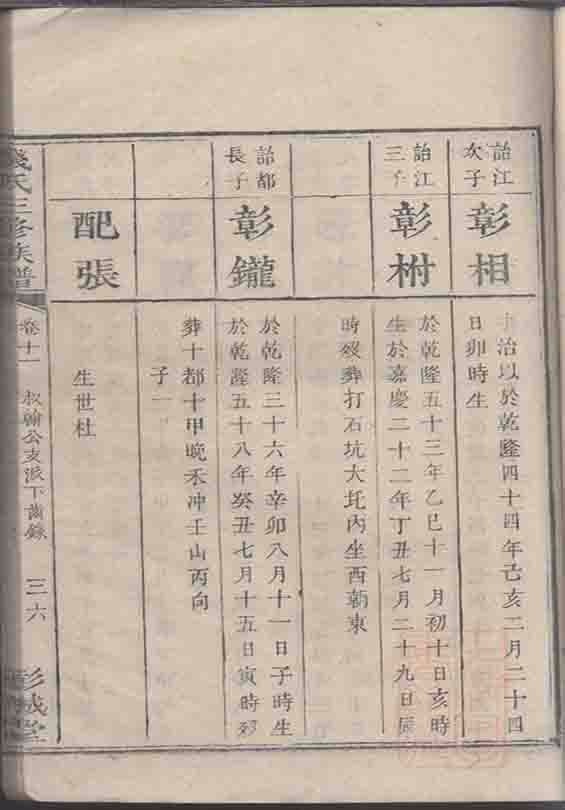 詒江
次子
彰相
治以於乾隆四十四年己亥二月二十四
日卯時生
詒江
三子
彰柎
於乾隆五十三年乙巳十一月初十日亥時
生於嘉慶二十二年丁丑七月二十九日辰
時歿葬打石坑大圫內坐西朝東
詒都
長子
彰鑨
於乾隆三十六年辛卯八月十一日子時生
於乾隆五十八年癸丑七月十五日寅時歿
葬十都十甲晚禾冲壬山丙向
子一
配張
生世杜
氏三修族譜
卷十一
叔翰公支派下齒錄
三六
彭城堂